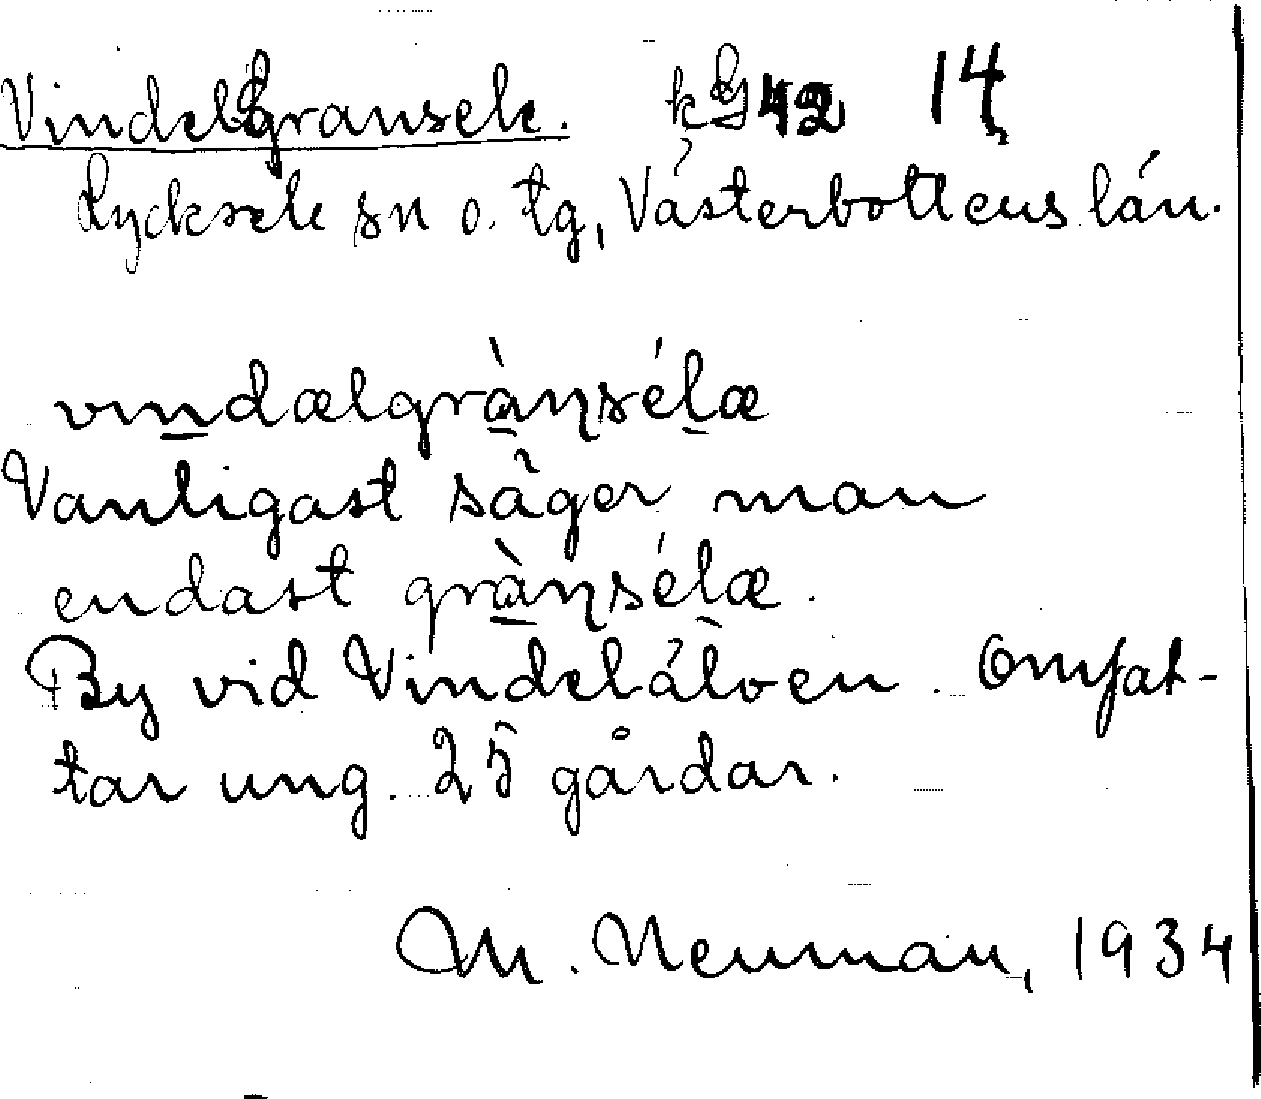 Vindelgransele. kg 42 14
Lycksele sn o. tg, Västerbottens län.
vindælgrànsélæ
Vanligast säger man
endast grànsélæ.
By vid Vindelälven. Omfat-
tar ung. 25 gårdar.
M. Neuman, 1934